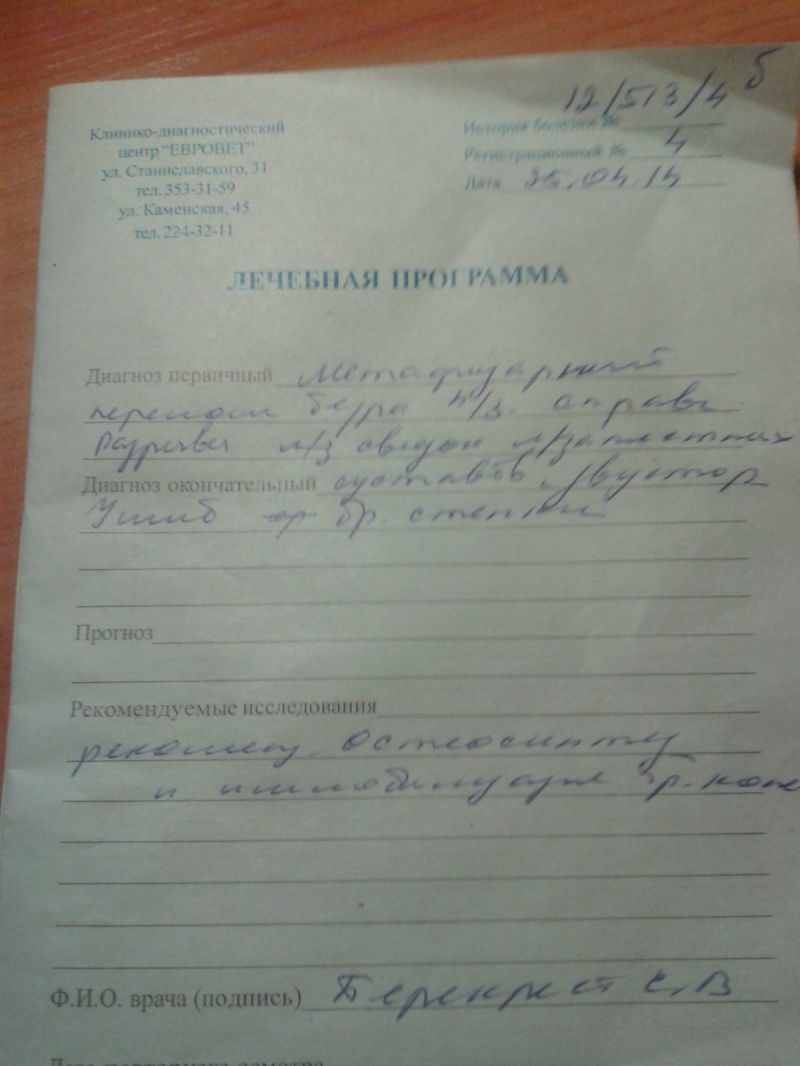 12/513/4 б
Клинико-диагностический
центр "ЕВРОВЕТ"
ул. Станиславского, 31
тел. 353-31-59
ул. Каменская, 45
тел. 224-32-11
История болезни №
Регистрационный № 4
Дата 25.04.14
ЛЕЧЕБНАЯ ПРОГРАММА
Диагноз первичный Метафизарный
перелом бедра н/з. справа
Разрывы связок м/заплюстных
Диагноз окончательный суставов, двустор
Ушиб бр. стенки
Прогноз
Рекомендуемые исследования
рекоменд. Остеосинтез
и иммобилизация гр. кон
Ф.И.О. врача (подпись) Перекрест С.В
Дата повторного осмотра